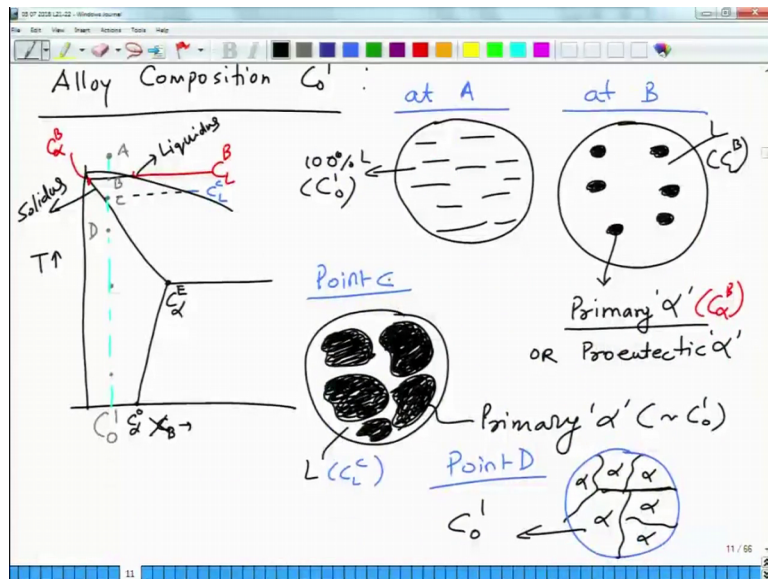 05 07 2018 L21-22 - Windows Journal
File Edit View Insert Actions Tools Help
B I
Alloy Composition C₀' :
at A
at B
C_α^B
A
Liquidus
C_L^B
B
C
C_L^C
Solidus
D
T↑
C_α^E
C₀'
C_α^0 X_B →
100% L
(C₀')
L
(C_L^B)
Primary 'α' (C_α^B)
OR Proeutectic 'α'
Point C
Primary 'α' (~C₀')
L (C_L^C)
Point D
C₀'
α α α
α α α
α
11 / 66
11